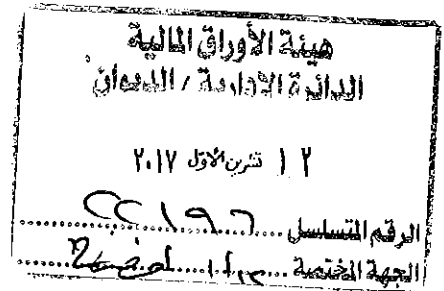 هيئة الأوراق المالية
الدائرة الادارية / الديوان
١٢ تشرين الأول ٢٠١٧
الرقم المتسلسل
الجهة المختصة